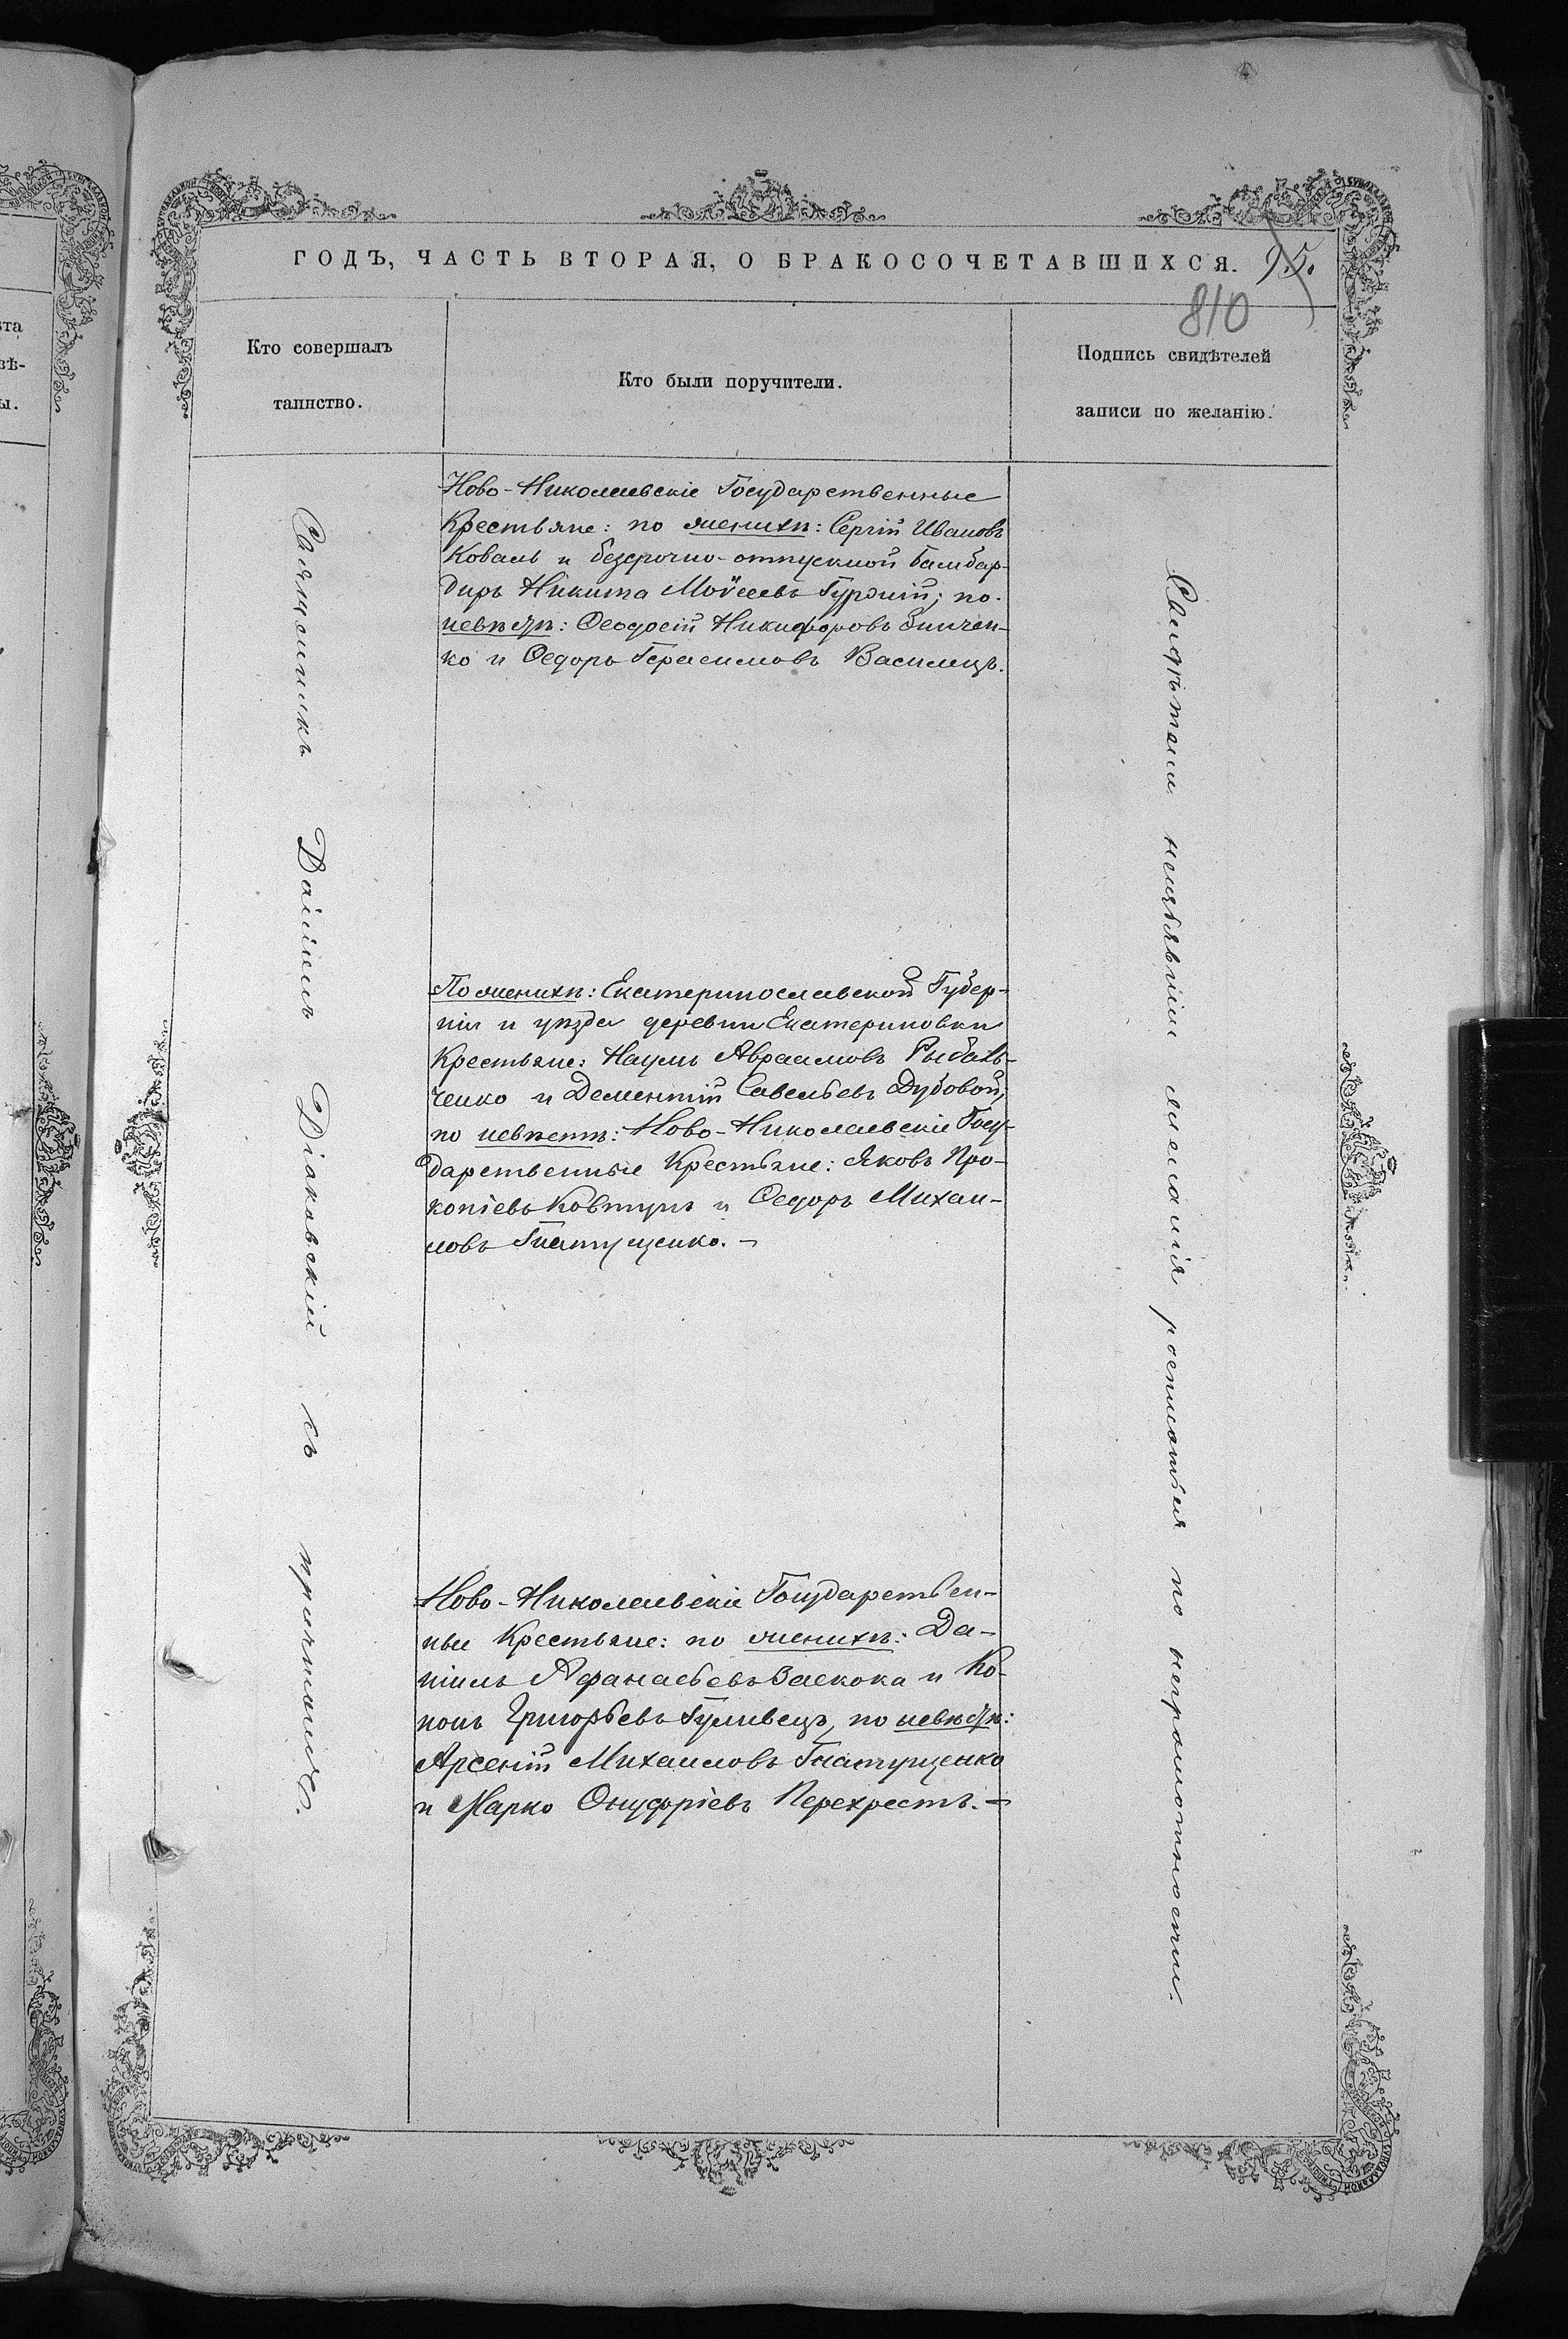 ГОДЪ, ЧАСТЬ ВТОРАЯ, О БРАКОСОЧЕТАВШИХСЯ.
810
Кто совершалъ
таинство.
Кто были поручители.
Подпись свидѣтелей
записи по желанію.
Священникъ Даніилъ Діаковскій съ причтомъ.
Ново-Николаевскіе Государственные
Крестьяне: по женихѣ: Сергій Ивановъ
Коваль и безсрочно-отпускной бамбар-
диръ Никита Моѵсеевъ Гуржій; по
невѣстѣ: Ѳеодосій Никифоровъ Зинчен-
ко и Ѳедоръ Герасимовъ Василецъ.
По женихѣ: Екатеринославской Губер-
ніи и уѣзда деревни Екатериновки
Крестьяне: Наумъ Авраамовъ Рыбаль-
ченко и Дементій Савельевъ Дубовой;
по невѣстѣ: Ново-Николаевскіе Госу-
дарственные Крестьяне: Яковъ Про-
копіевъ Ковтунъ и Ѳедоръ Михаи-
ловъ Гнатущенко. —
Ново-Николаевскіе Государствен-
ные Крестьяне: по женихѣ: Да-
ніилъ Аѳанасьевъ Заскока и Ко-
нонъ Григорьевъ Гуливецъ, по невѣстѣ:
Арсеній Михаиловъ Гнатущенко
и Марко Онуфріевъ Перехрестъ. —
Свидѣтели неизъявили желанія росписаться по неграмотности.